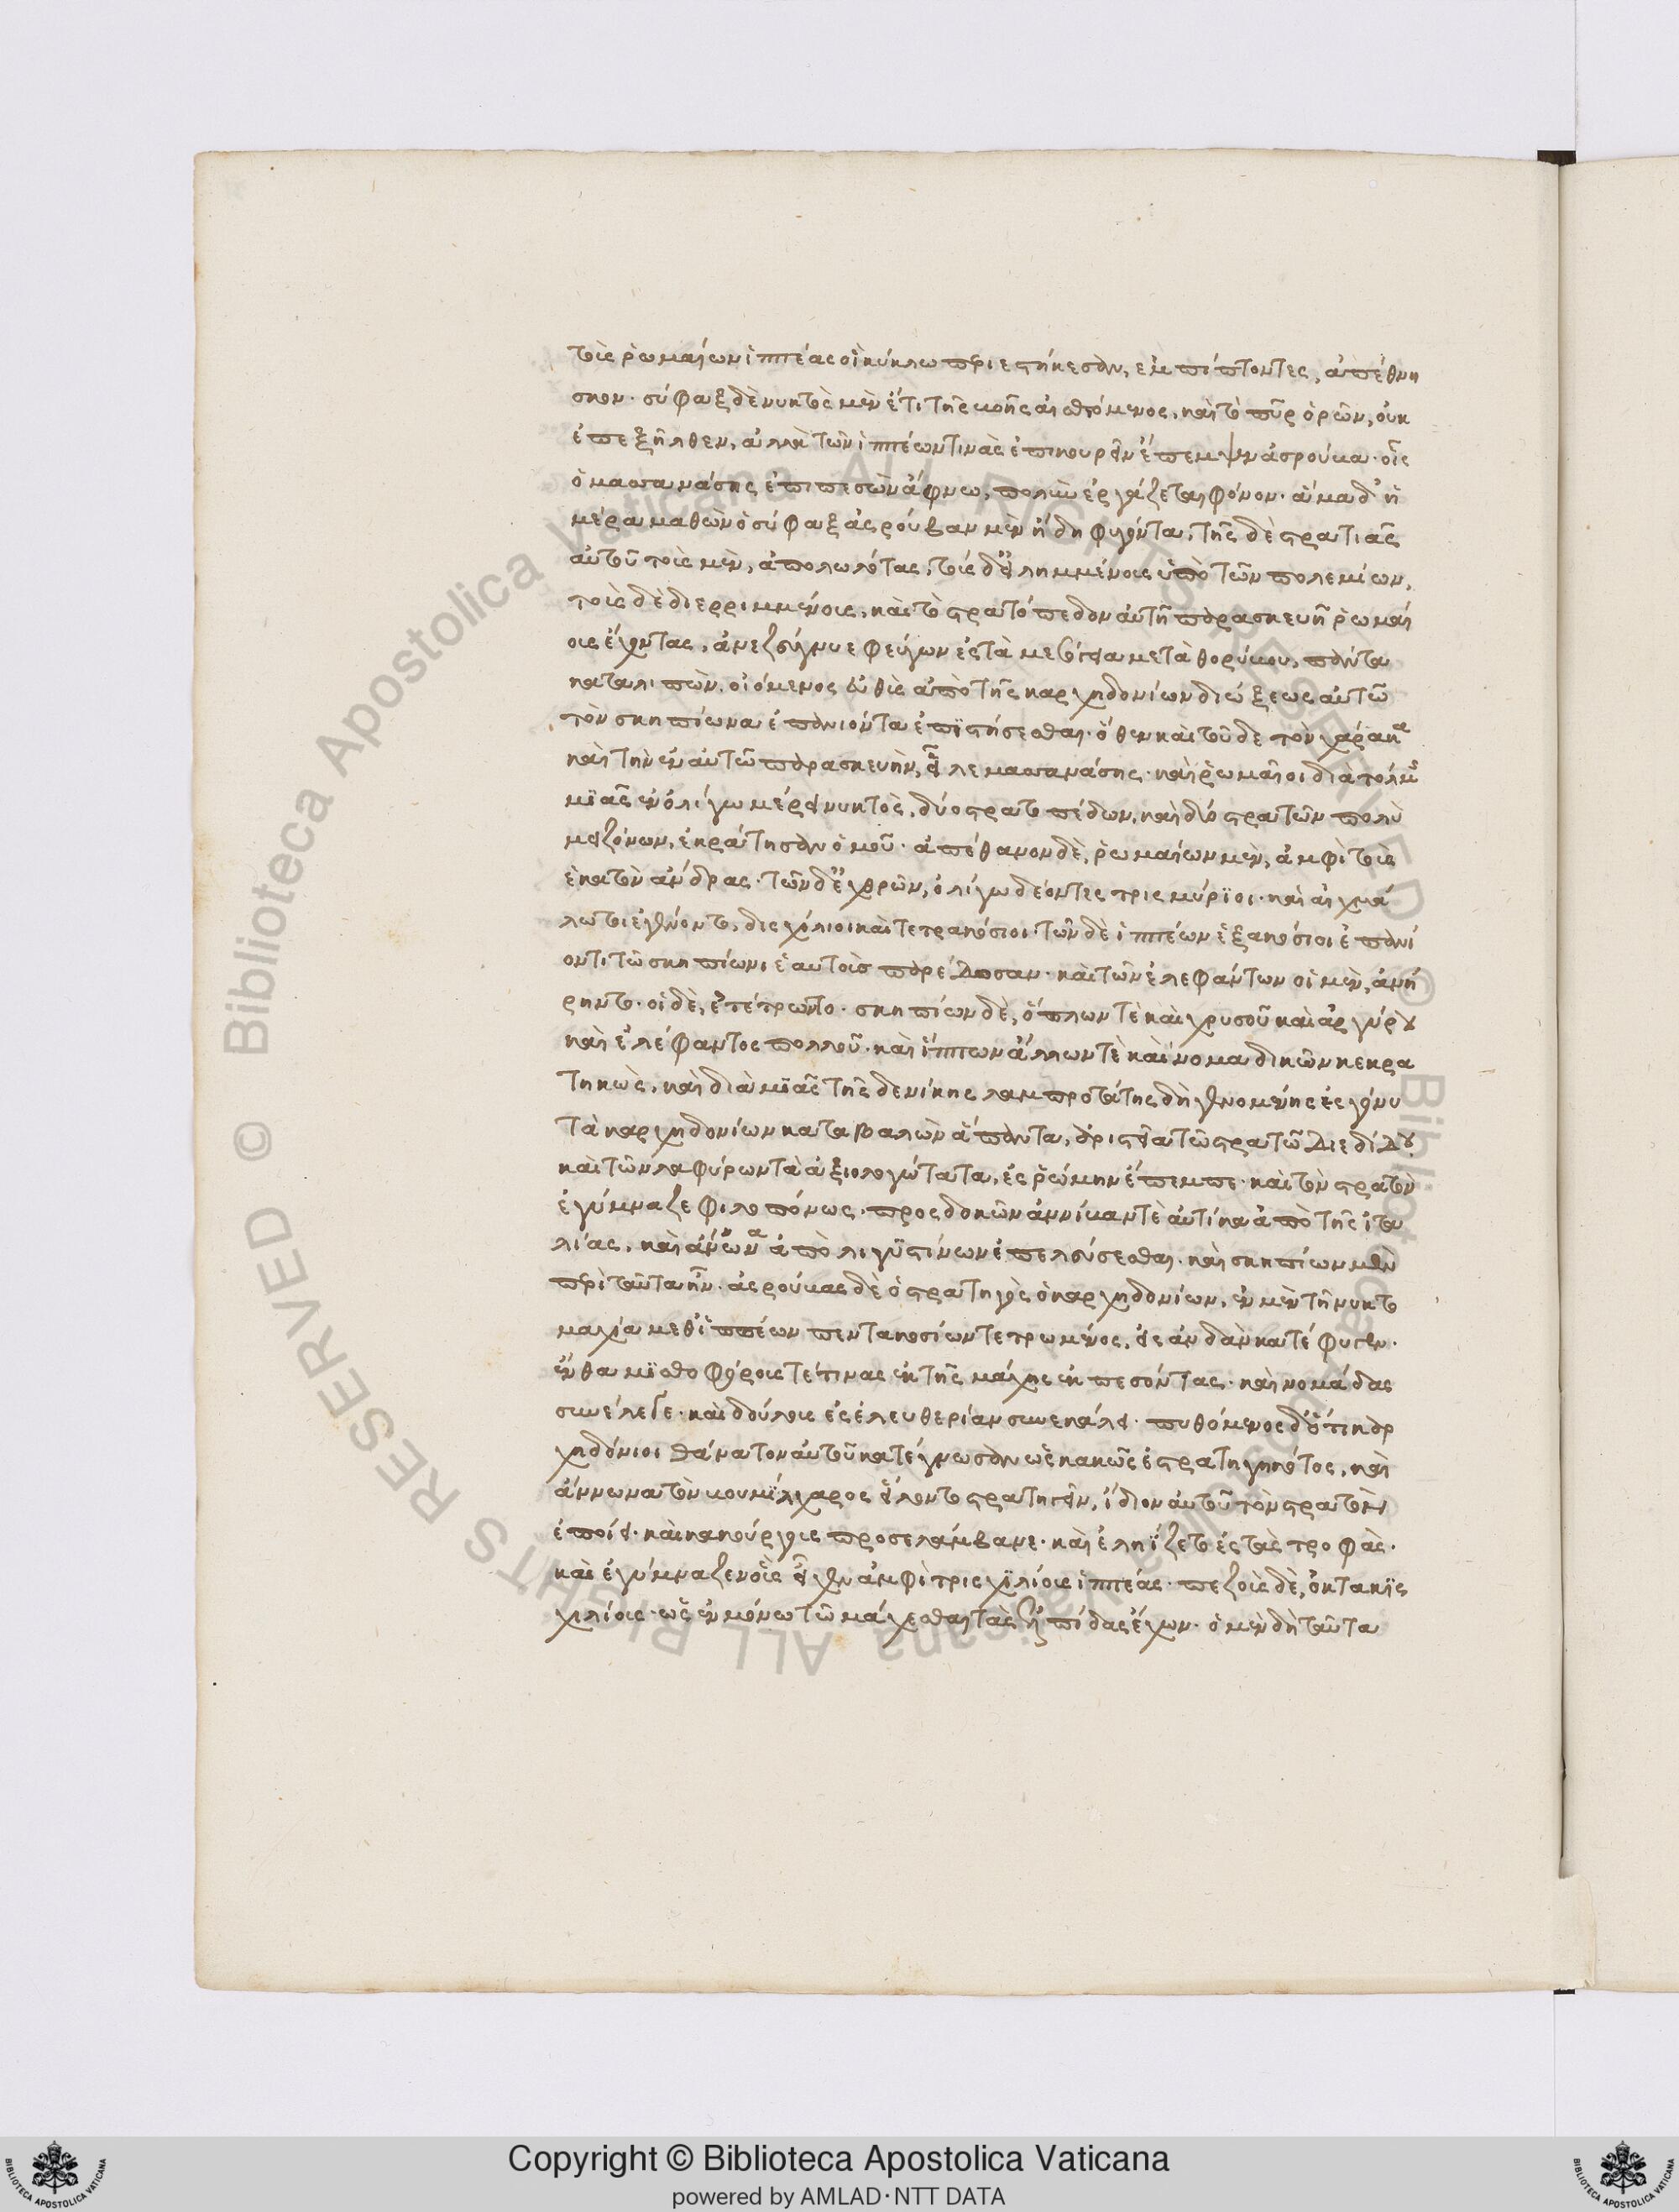 τοὺς ῥωμαίων ἱππέας οἳ κύκλω περιεστήκεσαν, ἐμπίπτοντες, ἀπέθνη
σκον· σύφαξ δὲ νυκτὸς μὲν ἔτι τῆς βοῆς αἰσθόμενος, καὶ τὸ πῦρ ὁρῶν, οὐκ
ἐπεξῆλθεν, ἀλλὰ τῶν ἱππέων τινὰς ἐπικουρεῖν ἔπεμψεν ἀσρούβα· οἷς
ὁ μασσανάσης ἐπιπεσὼν ἄφνω, πολὺν ἐργάζεται φόνον· ἅμα δ' ἡ
μέρα μαθὼν ὁ σύφαξ ἀσρούβαν μὲν ἤδη φυγόντα, τῆς δὲ στρατιᾶς
αὐτοῦ τοὺς μὲν, ἀπολωλότας, τοὺς δ' εἰλημμένους ὑπὸ τῶν πολεμίων,
τοὺς δὲ διερριμμένους, καὶ τὸ στρατόπεδον αὐτῆ παρασκευῆ ῥωμαί
ους ἔχοντας, ἀνεζεύγνυε φεύγων ἐς τὰ μεσόγεια μετὰ θορύβου, πάντα
καταλιπών, οἰόμενος εὐθὺς ἀπὸ τῆς καρχηδονίων διώξεως αὐτῶ
τὸν σκηπίωνα ἐπανιόντα ἐπιστήσεσθαι· ὅθεν καὶ τοῦδε τὸν χάρακα
καὶ τὴν ἐν αὐτῶ παρασκευὴν, εἷλε μασσανάσης· καὶ ῥωμαῖοι διὰ τόλμης
μιᾶς ἐν ὀλίγω μέρει νυκτὸς, δύο στρατοπέδων, καὶ δύο στρατῶν πολὺ
μειζόνων, ἐκράτησαν ὁμοῦ· ἀπέθανον δὲ, ῥωμαίων μὲν, ἀμφὶ τοὺς
ἑκατὸν ἄνδρας· τῶν δ' ἐχθρῶν, ὀλίγω δέοντες τρισμύριοι· καὶ αἰχμά
λωτοι ἐγένοντο, δισχίλιοι καὶ τετρακόσιοι· τῶν δὲ ἱππέων ἑξακόσιοι ἐπανι
όντι τῶ σκηπίωνι ἑαυτοὺς παρέδοσαν· καὶ τῶν ἐλεφάντων οἱ μὲν, ἀνή
ρηντο· οἱ δὲ, ἐτέτρωντο· σκηπίων δὲ, ὅπλων τὲ καὶ χρυσοῦ καὶ ἀργύρου
καὶ ἐλέφαντος πολλοῦ· καὶ ἵππων ἄλλων τὲ καὶ νομαδικῶν κεκρα
τηκὼς, καὶ διὰ μιᾶς τῆσδε νίκης λαμπροτάτης δὴ γενομένης ἐς γόνυ
τὰ καρχηδονίων καταβαλὼν ἅπαντα, ἀριστεῖα τῶ στρατῶ διεδίδου
καὶ τῶν λαφύρων τὰ ἀξιολογώτατα, ἐς ῥώμην ἔπεμπε· καὶ τὸν στρατὸν
ἐγύμναζε φιλοπόνως· προσδοκῶν ἀννίβαν τὲ αὐτίκα ἀπὸ τῆς ἰτα
λίας, καὶ ἄννωνα ἀπὸ λιγυστίνων ἐπελεύσεσθαι· καὶ σκηπίων μὲν
περὶ ταῦτα ἦν· ἀσρούβας δὲ ὁ στρατηγὸς ὁ καρχηδονίων, ἐν μὲν τῆ νυκτο
μαχία μεθ' ἱππέων πεντακοσίων τετρωμένος, ἐς ἄνδαν κατέφυγεν·
ἔνθα μισθοφόρους τέ τινας ἐκ τῆς μάχης ἐκπεσόντας· καὶ νομάδας
συνέλεγε· καὶ δούλους ἐς ἐλευθερίαν συνεκάλει· πυθόμενος δ' ὅτι καρ
χηδόνιοι θάνατον αὐτοῦ κατέγνωσαν ὡς κακῶς ἐστρατηγηκότος, καὶ
ἄννωνα τὸν βουμίλχαρος εἵλοντο στρατηγεῖν, ἴδιον αὐτοῦ τὸν στρατὸν
ἐποίει· καὶ κακούργους προσελάμβανε· καὶ ἐληίζετο ἐς τὰς τροφὰς·
καὶ ἐγύμναζεν οὓς εἶχεν ἀμφὶ τρισχιλίους ἱππέας· πεζοὺς δὲ, ὀκτακις
χιλίους· ὡς ἐν μόνω τῶ μάχεσθαι τὰς ἐλπίδας ἔχων· ὁ μὲν δὴ ταῦτα